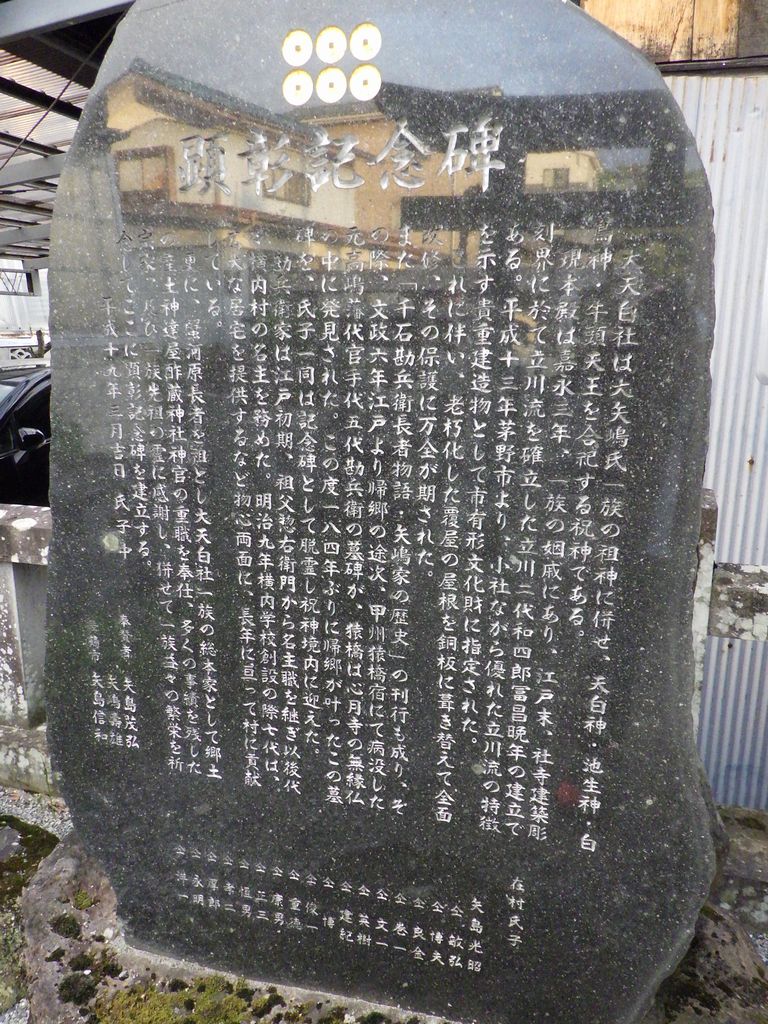 顕彰記念碑
大天白社は大矢嶋氏一族の祖神に併せ、天白神・池生神・白
鳥神・牛頭天王を合祀する祝神である。
現本殿は嘉永三年、一族の姻戚にあり、江戸末、社寺建築彫
刻界に於て立川流を確立した立川二代和四郎冨昌晩年の建立で
ある。平成十三年茅野市より、小社ながら優れた立川流の特徴
を示す貴重建造物として市有形文化財に指定された。
これに伴い、老朽化した覆屋の屋根を銅板に葺き替えて全面
改修、その保護に万全が期された。
また「千石勘兵衛長者物語・矢嶋家の歴史」の刊行も成り、そ
の際、文政六年江戸より帰郷の途次、甲州猿橋宿にて病没した
元高嶋藩代官手代五代勘兵衛の墓碑が、猿橋は心月寺の無縁仏
の中に発見された。この度一八四年ぶりに帰郷が叶ったこの墓
碑を、氏子一同は記念碑として脱霊し祝神境内に迎えた。
勘兵衛家は江戸初期、祖父惣右衛門から名主職を継ぎ以後代
々横内村の名主を務めた。明治九年横内学校創設の際七代は、
大な居宅を提供するなど物心両面に、長年に亘って村に貢献
している。
更に、栗河原長者を祖とし大天白社一族の総本家として郷土
の産土神達屋酢蔵神社神官の重職を奉仕、多くの事績を残した
家、及び一族先祖の霊に感謝し、併せて一族益々の繁栄を祈
念してここに顕彰記念碑を建立する。
平成十九年三月吉日 氏子中
奉賛者 矢島茂弘
矢嶋壽雄
矢島信和
在村氏子
矢島光昭
仝 敏弘
仝 博夫
仝 巻一
仝 良金
仝 文二
仝 英樹
仝 建紀
仝 博
仝 俊一
仝 重徳
仝 康男
仝 正三
仝 恒男
仝 孝二
仝 厚郎
仝 永明
仝 洪一